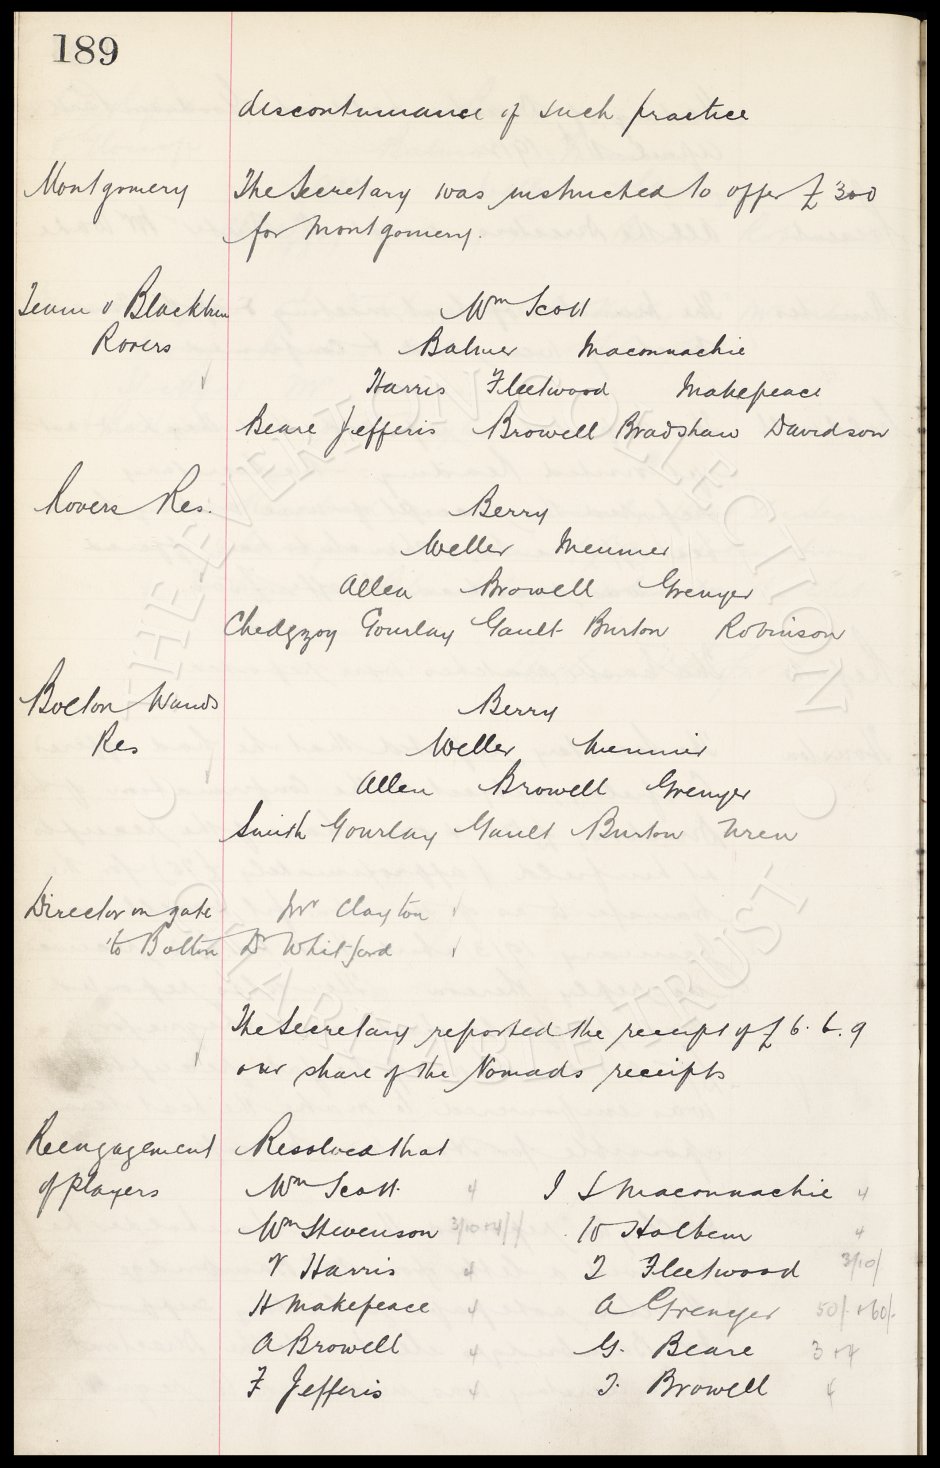 189
discontinuance of such practice
Montgomery The Secretary was instructed to offer £300
for Montgomery.
Team v Blackburn Wm Scott
Rovers Balmer Maconnachie
Harris Fleetwood Makepeace
Beare Jefferis Browell Bradshaw Davidson
Rovers Res. Berry
Weller Meunier
Allen Browell Grenyer
Chedgzoy Gourlay Gault Burton Robinson
Bolton Wands Berry
Res Weller Meunier
Allen Browell Grenyer
Smith Gourlay Gault Burton Wren
Director on gate Mr Clayton
to Bolton Dr Whitford
The Secretary reported the receipt of £6.6.9
our share of the Nomads receipts
Reengagement Resolved that
of players Wm Scott 4 J S Maconnachie 4
Wm Stevenson 3/10+4/ W Holbem 4
V Harris 4 T Fleetwood 3/10/
H Makepeace 4 A Grenyer 50/- +60/-
A Browell 4 G. Beare 3+4
F Jefferis 4 T. Browell 4
THE EVERTON COLLECTION
CHARITABLE TRUST